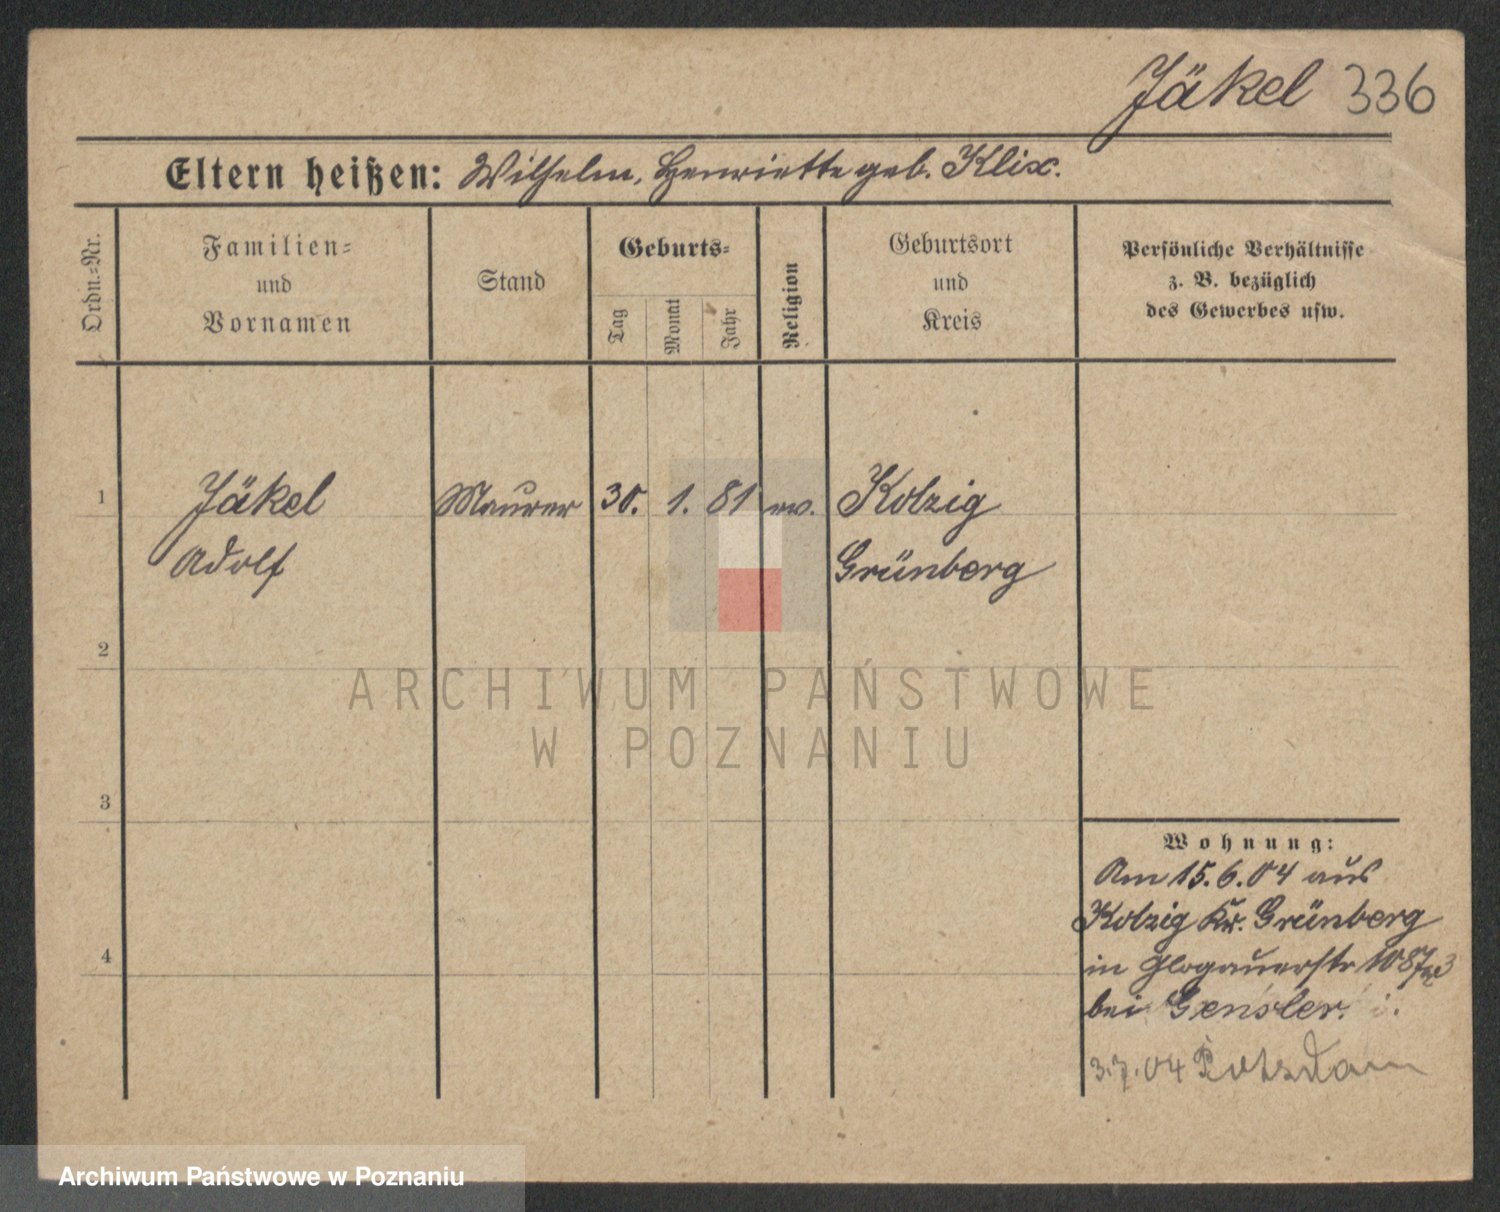 Jäkel 336
Eltern heißen: Wilhelm, Henriette geb. Klix.
Ordn.=Nr.
Familien=
und
Vornamen
Stand
Geburts=
Tag
Monat
Jahr
Religion
Geburtsort
und
Kreis
Persönliche Verhältnisse
z. B. bezüglich
des Gewerbes usw.
1 Jäkel Maurer 30. 1. 81 ev. Kolzig
Adolf Grünberg
2
3
4
Wohnung:
Am 15.6.04 aus
Kolzig Kr. Grünberg
in Glogauerstr
bei Gensler.
3.7.04 Potsdam
ARCHIWUM PAŃSTWOWE
W POZNANIU
Archiwum Państwowe w Poznaniu